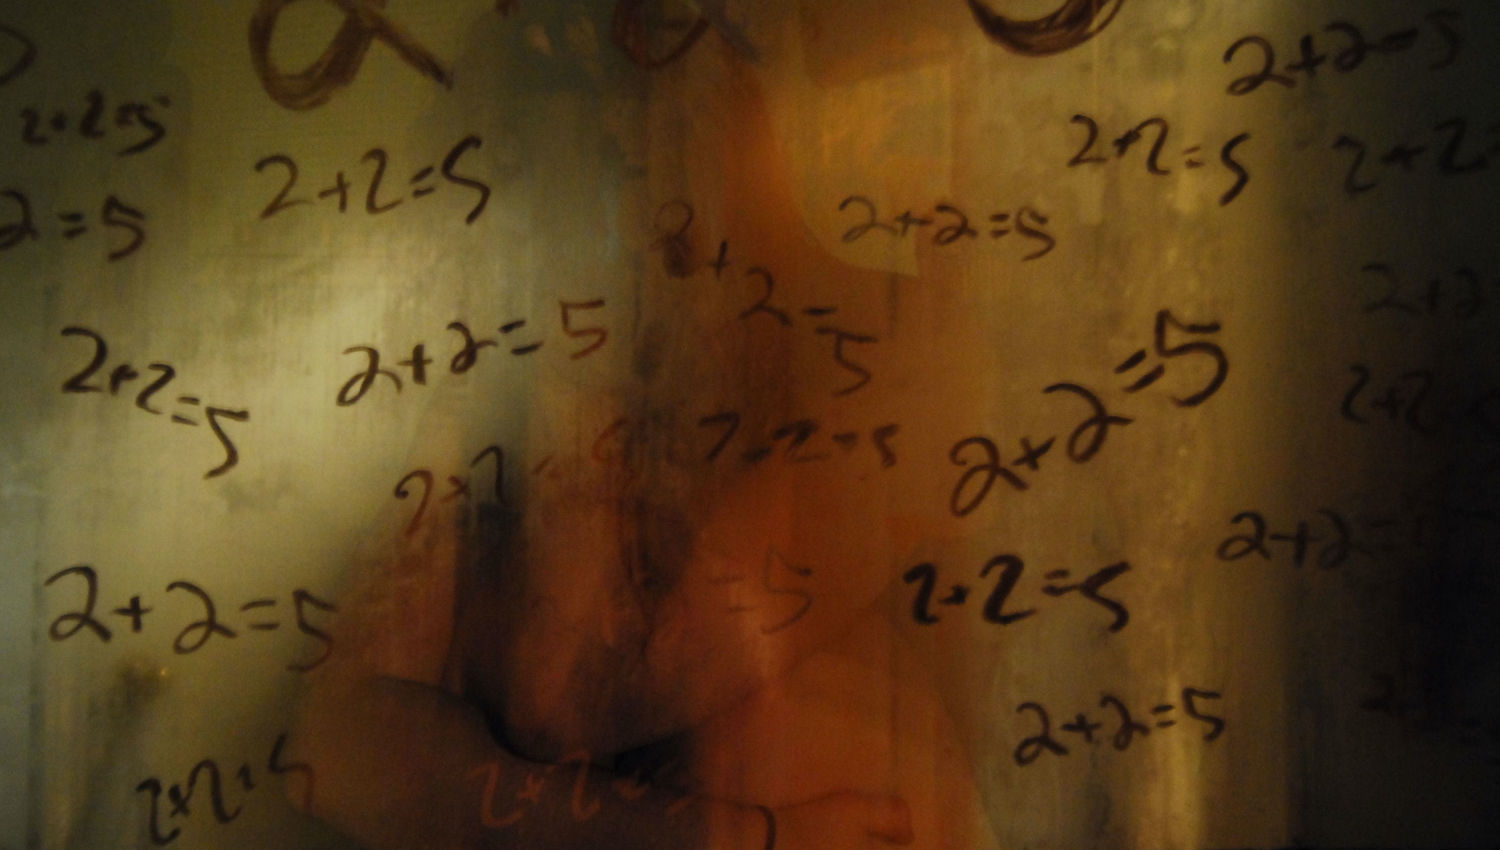 2+2=5
2+2=5
2+2=5
2+2
2=5
2+2=5
2+2=5
2+2=5
2+2
2+2=5
2+2=5
2+2=5
2+2
2+2=5
2+2=5
2+2=
=5
2+2=5
2+2=5
2+2=5
2+2=5
2+2